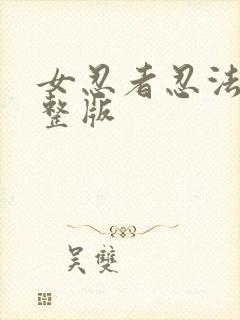 女忍者忍法
整版
吴雙